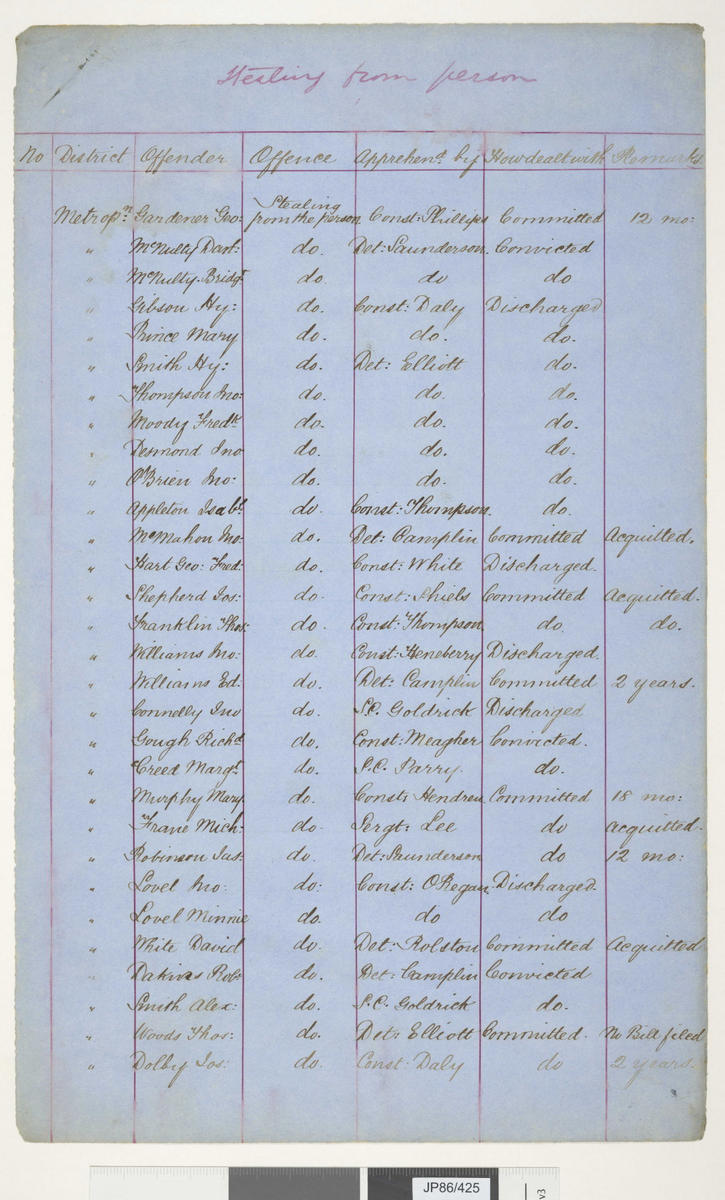 Stealing from person
No District Offender Offence Apprehend. by How dealt with Remarks
Metropn. Gardener Geo: Stealing from the person Const: Phillips Committed 12 mo:
" McNulty Danl: do. Det: Saunderson. Convicted
" McNulty. Bridgt do. do do
" Gibson Hy: do. Const: Daly Discharged
" Prince Mary do. do. do.
" Smith Hy: do. Det: Elliott do.
" Thompson Jno: do. do. do.
" Moody Fredk do. do. do.
" Desmond Jno do. do. do.
" O'Brien Jno: do. do. do.
" Appleton Isabl. do. Const: Thompson. do.
" McMahon Jno: do. Det: Camplin Committed Acquitted.
" Hart Geo: Fred: do. Const: White Discharged.
" Shepherd Jos: do. Const: Shiels Committed Acquitted.
" Franklin Thos: do. Const: Thompson. do. do.
" Williams Jno: do. Const: Heneberry Discharged.
" Williams Ed: do. Det: Camplin Committed 2 years.
" Connelly Jno do. S.C. Goldrick Discharged
" Gough Richd do. Const: Meagher Convicted.
" Creed Margt. do. S.C. Parry. do.
" Murphy Mary. do. Const: Hendren Committed 18 mo:
" Mich: do. Sergt: Lee do acquitted.
" Robinson Jas: do. Det: Saunderson do 12 mo:
" Lovel Jno: do: Const: O'Regan. Discharged.
" Lovel Minnie do. do do
" White David do. Det: Rolston Committed Acquitted
" Dakins Robt do. Det: Camplin Convicted
" Smith Alex: do. S.C. Goldrick do.
" Woods Thos: do. Det: Elliott Committed. No Bill filed
" Dolby Jos: do. Const: Daly do 2 years.
JP86/425
v3